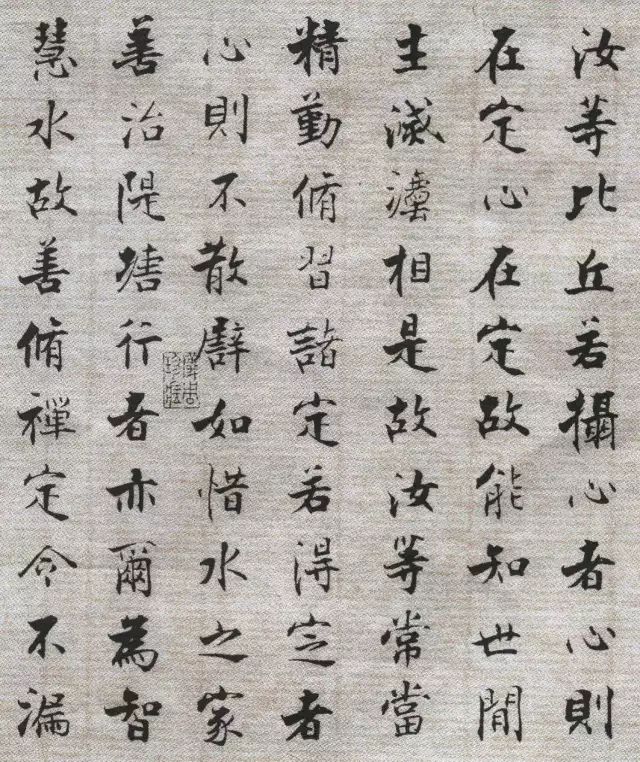 汝等比丘若攝心者心則
在定心在定故能知世間
生滅瀍相是故汝等常當
精勤脩習諸定若得定者
心則不散辟如惜水之家
善治隄塘行者亦爾為智
慧水故善脩禪定令不漏